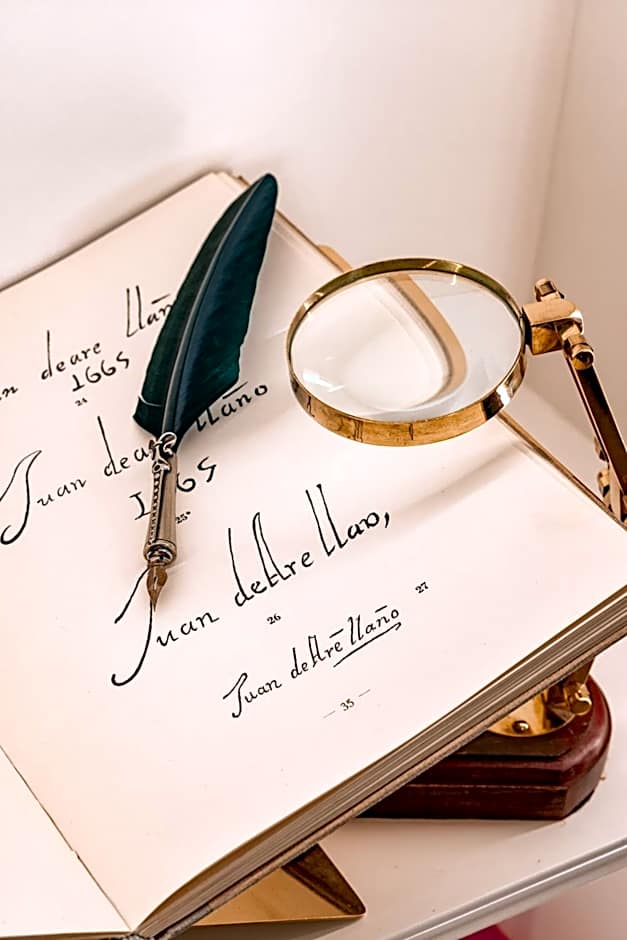 n de arre llañ
1665
24
Juan de a llaño
1665
25
Juan de Arre llano,
26
27
Juan de Arrē llaño
— 35 —